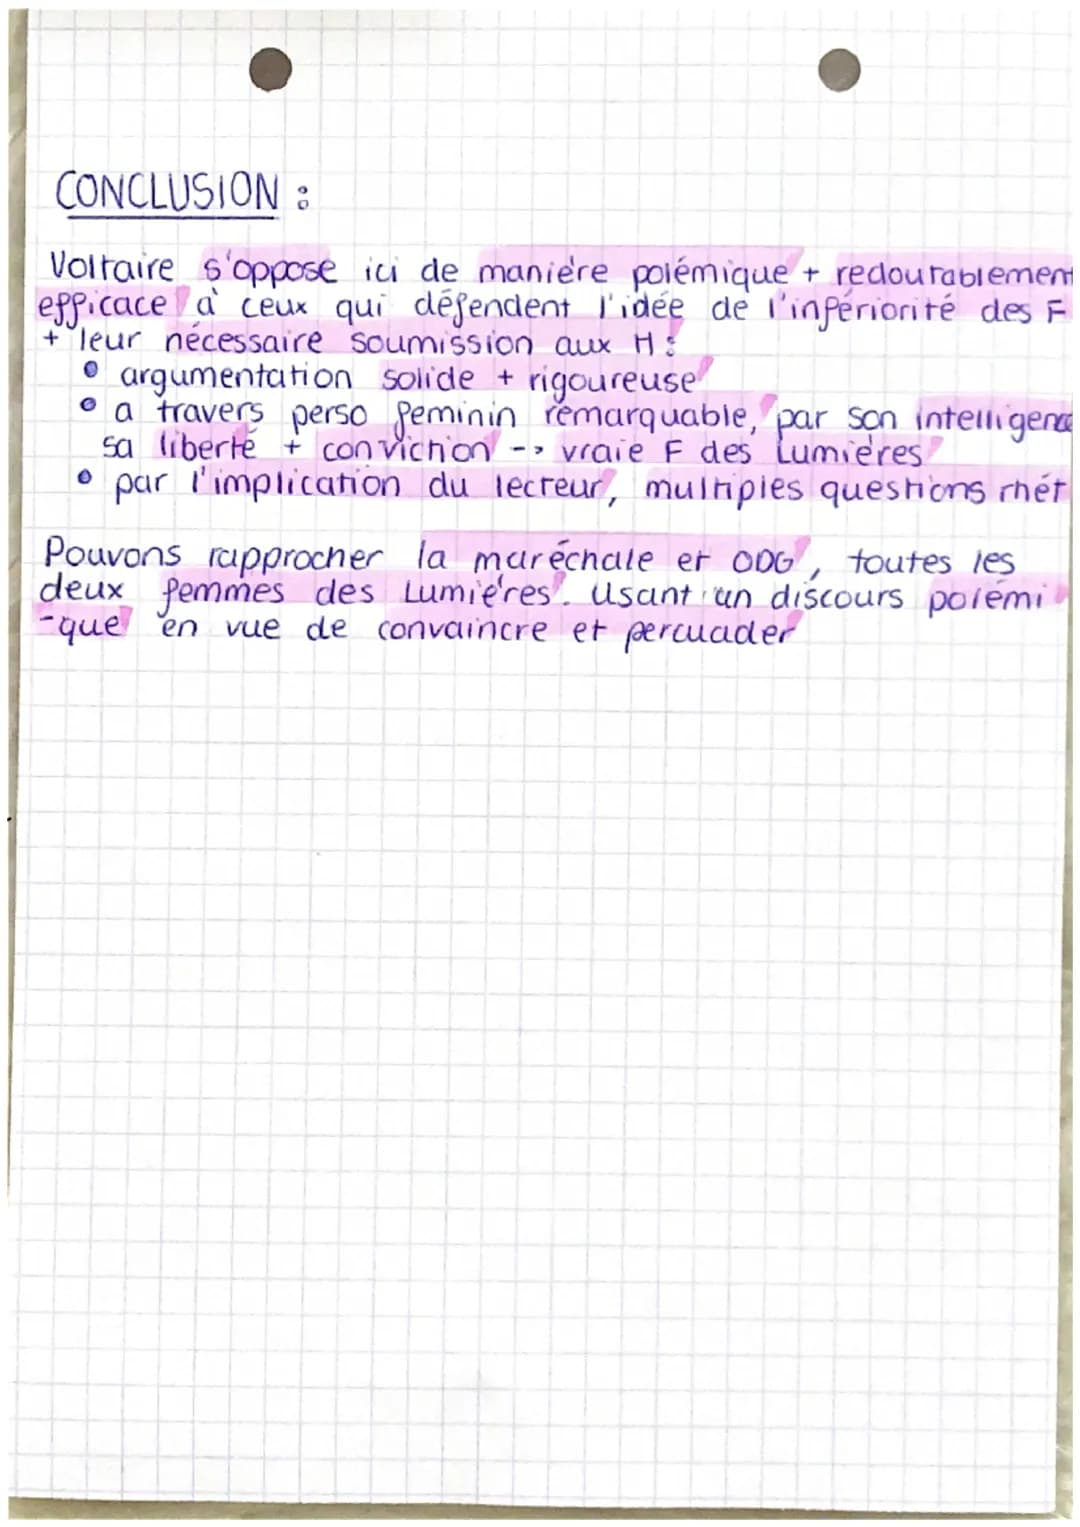 CONCLUSION :
Voltaire s'oppose ici de manière polémique + redoutablement
efficace à ceux qui défendent l'idée de l'infériorité des F
+ leur nécessaire soumission aux H :
• argumentation solide + rigoureuse
• a travers perso feminin remarquable, par son intelligence
sa liberté + conviction --> vraie F des Lumières
• par l'implication du lecteur, multiples questions rhét
Pouvons rapprocher la maréchale et ODG, toutes les
deux femmes des Lumières. Usant un discours polémi
-que en vue de convaincre et percuader